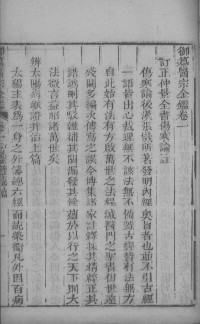 御纂醫宗金鑑卷一
訂正仲景全書傷寒論註
傷寒論後漢張機所著發明內經奧旨者也並不引古經
一語皆出心裁理無不該法無不備蓋古經皆有法無方
自此始有法有方啟萬世之法程誠醫門之聖書但世遠
殘闕多編次傳寫之誤今博集諸家註釋採其精粹正其
錯譌刪其駁雜補其闕漏發其餘蘊於以行之天下則大
法微言益昭諸萬世矣
辨太陽病脈證并治上篇
太陽主表為一身之外藩總六經而統榮衛凡外因百病